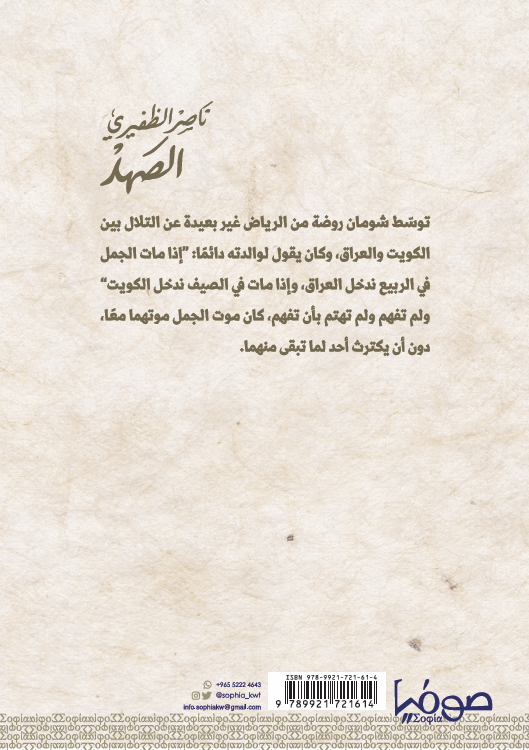 ناصر الظفيري
الصهد
توسّط شومان روضة من الرياض غير بعيدة عن التلال بين
الكويت والعراق، وكان يقول لوالدته دائمًا: "إذا مات الجمل
في الربيع ندخل العراق، وإذا مات في الصيف ندخل الكويت"
ولم تفهم ولم تهتم بأن تفهم، كان موت الجمل موتهما معًا،
دون أن يكترث أحد لما تبقى منهما.
+965 5222 4643
@sophia_kwt
info.sophiakw@gmail.com
ISBN 978-9921-721-61-4
9 789921 721614
صوفيا
Σοφία